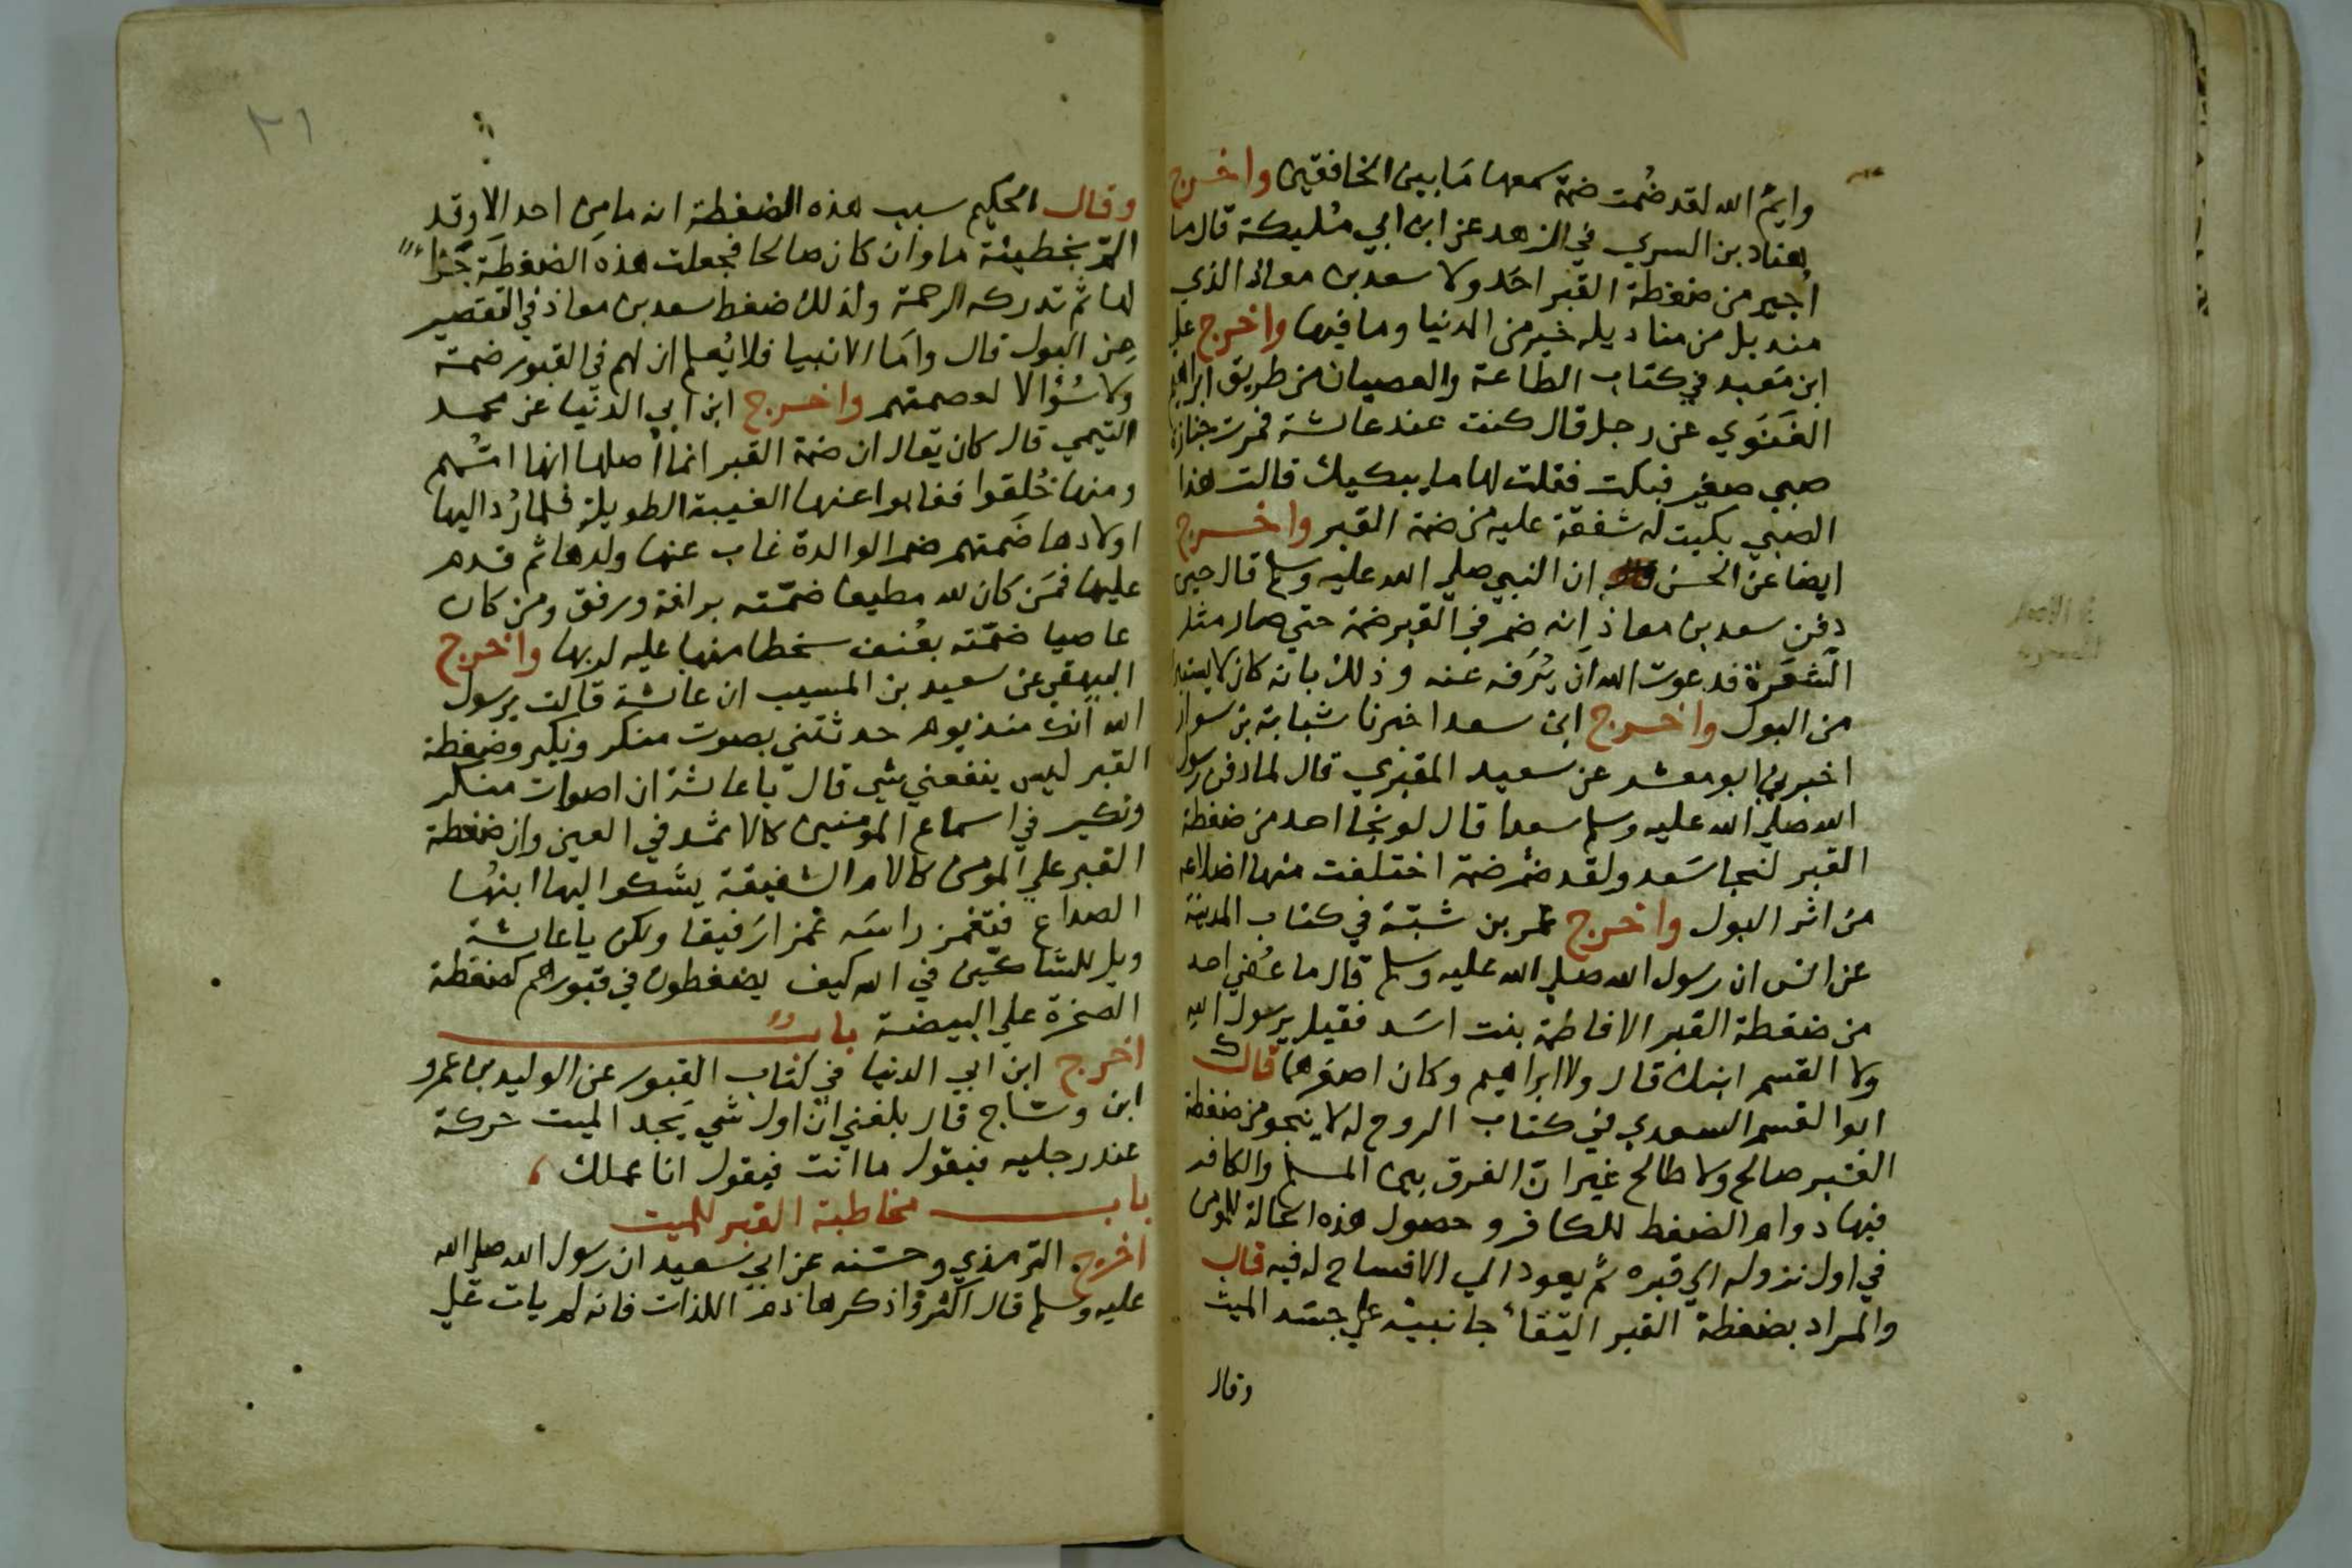 وايمُ الله لقد ضُمت ضمة سمعها مَا بين الخافقين واخرج
هناد بن السري في الزهد عن ابن ابي مُليكة قال ما
اُجير من ضغطة القبر احَد ولا سعد بن معاذ الذي
منديل من مناديله خير من الدنيا وما فيها واخرج علي
ابن مَعبد في كتاب الطاعة والعصيان من طريق ابراهيم
الغَنَوي عن رجل قال كنت عند عائشة فمرت جنازة
صبي صغير فبكت فقلت لها ما يبكيك قالت هذا
الصبي بكيت له شفقة عليه من ضمة القبر واخرج
ايضا عن الحسن ان النبي صلي الله عليه وسلم قال حين
دفن سعد بن معاذ انه ضم في القبر ضمة حتي صار مثل
الشعَرة فدعوت الله ان يُرَفه عنه وذلك بانه كان لا يستبرا
من البول واخرج ابن سعد اخبرنا شبابة بن سوار
اخبرني ابو معشر عن سعيد المقبري قال لما دفن رسول
الله صلي الله عليه وسلم سعدا قال لو نجا احد من ضغطة
القبر لنجا سَعد ولقد ضُم ضمة اختلفت منها اضلاعه
من اثر البول واخرج عمر بن شبّة في كتاب المدينة
عن انس ان رسول الله صلي الله عليه وسلم قال ما عُفي احد
من ضغطة القبر الا فاطمة بنت اسَد فقيل يرسول الله
ولا القسم ابنك قال ولا ابراهيم وكان اصغرهما قال
ابوا القسم السعدي في كتاب الروح له لا ينجو من ضغطة
القبر صالح ولا طالح غير انّ الفرق بين المسلم والكافر
فيها دوام الضغط للكافر وحصول هذه الحالة للمومن
في اول نزوله الي قبره ثم يعود الي الافساح له فيه قال
والمراد بضغطة القبر التقاء جانبيه علي جسَد الميت
وقال
٢١
وقال الحكيم سبب هذه الضغطة انه ما مِن احد الا وقد
المّ بخطيئة ما وان كان صالحا فجعلت هذه الضغطَة جَزاءً
لها ثم تدركه الرحمة ولذلك ضغط سعد بن معاذ في التقصير
مِن البول قال وامَا الانبيا فلا يُعلم ان لهم في القبور ضمة
ولا سُؤالا لعصمتهم واخرج ابن ابي الدنيا عن محمد
التيمي قال كان يقال ان ضمة القبر انما اُصلها انها امُّهم
ومنها خُلقوا فغابوا عنها الغيبة الطويلة فلما رُد اليها
اولادها ضَمتهم ضم الوالدة غاب عنها ولدها ثم قدم
عليها فمَن كان لله مطيعا ضمّته برافة ورفق ومن كان
عاصيا ضمّته بعُنف سخطا منها عليه لربها واخرج
البيهقي عن سعيد بن المسيب ان عائشة قالت يرسول
الله انك منذ يوم حدثتني بصوت منكر ونكير وضغطة
القبر ليس ينفعني شي قال يا عائشة ان اصوات منكر
ونكير في اسماع المومنين كالاثمد في العين وان ضغطة
القبر علي المومن كالام الشفيقة يشكوا اليها ابنُها
الصداع فتغمز راسَه غمزا رَفيقا ولكن يا عائشة
ويل للشاكّين في الله كيف يضغطون في قبورهم كضغطة
الصخرة علي البيضة بابٌ
اخرج ابن ابي الدنيا في كتاب القبور عن الوليد بن عمرو
ابن وسّاج قال بلغني انّ اول شي يَجد الميت حركة
عند رجليه فيقول ما انت فيقول انا عملك ،
باب مخاطبة القبر للميت
اخرج الترمذي وحسّنه عن ابي سعيد ان رسول الله صلي الله
عليه وسلم قال اكثروا ذكر هاذم اللذات فانه لم يات علي